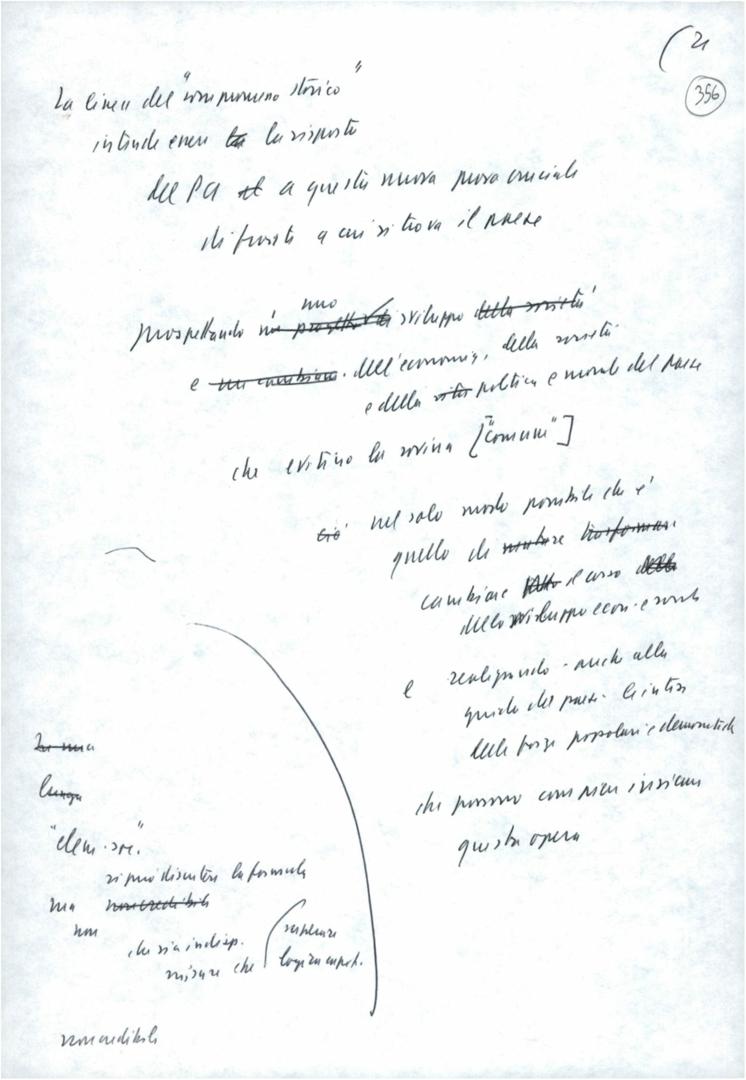 21
356
La linea del "compromesso storico"
intende essere la la risposta
del PCI a questa nuova prova cruciale
di fronte a cui si trova il paese
uno
prospettando un progetto di sviluppo della società
e un cambiam. dell'economia, della società
e della vita politica e morale del paese
che evitino la rovina ["comune"]
Ciò nel solo modo possibile che è
quello di mutare trasformare
cambiare tutto il corso della
dello sviluppo econ. e sociale
e realizzando - anche alla
guida del paese - le intese
delle forze popolari e democratiche
che possono compiere insieme
questa opera
lunga
"elem. soc."
si può discutere la formula
ma non credibile
non
che sia indisp.
misure che superare
logica capit.
non credibile